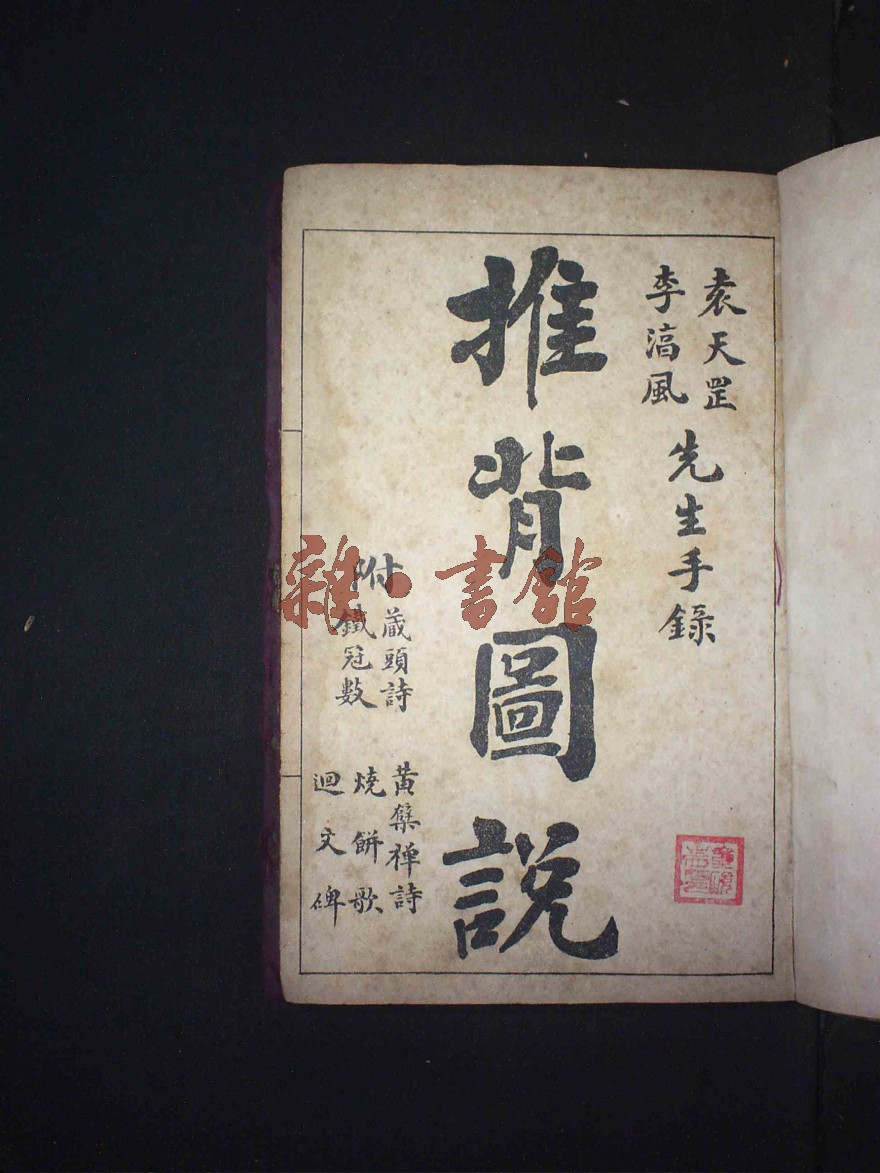 袁天罡
李淳風
先生手錄
推背圖說
附
藏頭詩
鐵冠數
黃蘗禪詩
燒餅歌
迴文碑
雜·書館